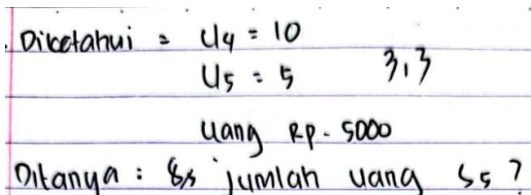 Diketahui = U4 = 10
U5 = 5 3,3
Uang Rp. 5000
Ditanya : jumlah uang S5 ?